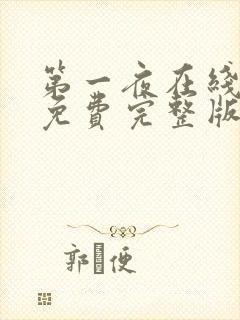 第一夜在线
免费完整版
郭便